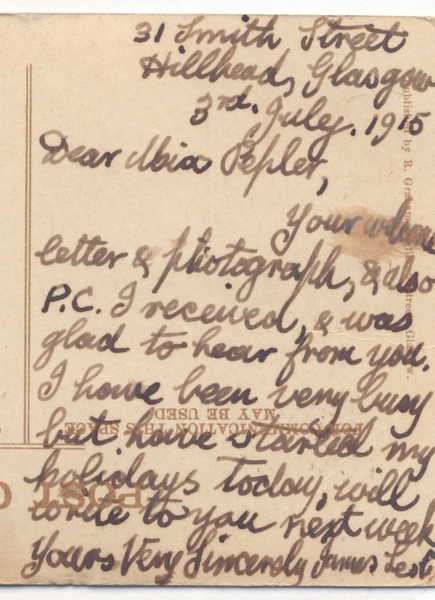 31 Smith Street
Hillhead, Glasgow
3rd. July. 1915
Dear Miss Pepler,
Your
letter & photograph, & also
P.C. I received, & was
glad to hear from you.
I have been very busy
but have started my
holidays today, will
write to you next week
Yours Very Sincerely James
FOR COMMUNICATION THIS SPACE
MAY BE USED
POST C
Published by R.